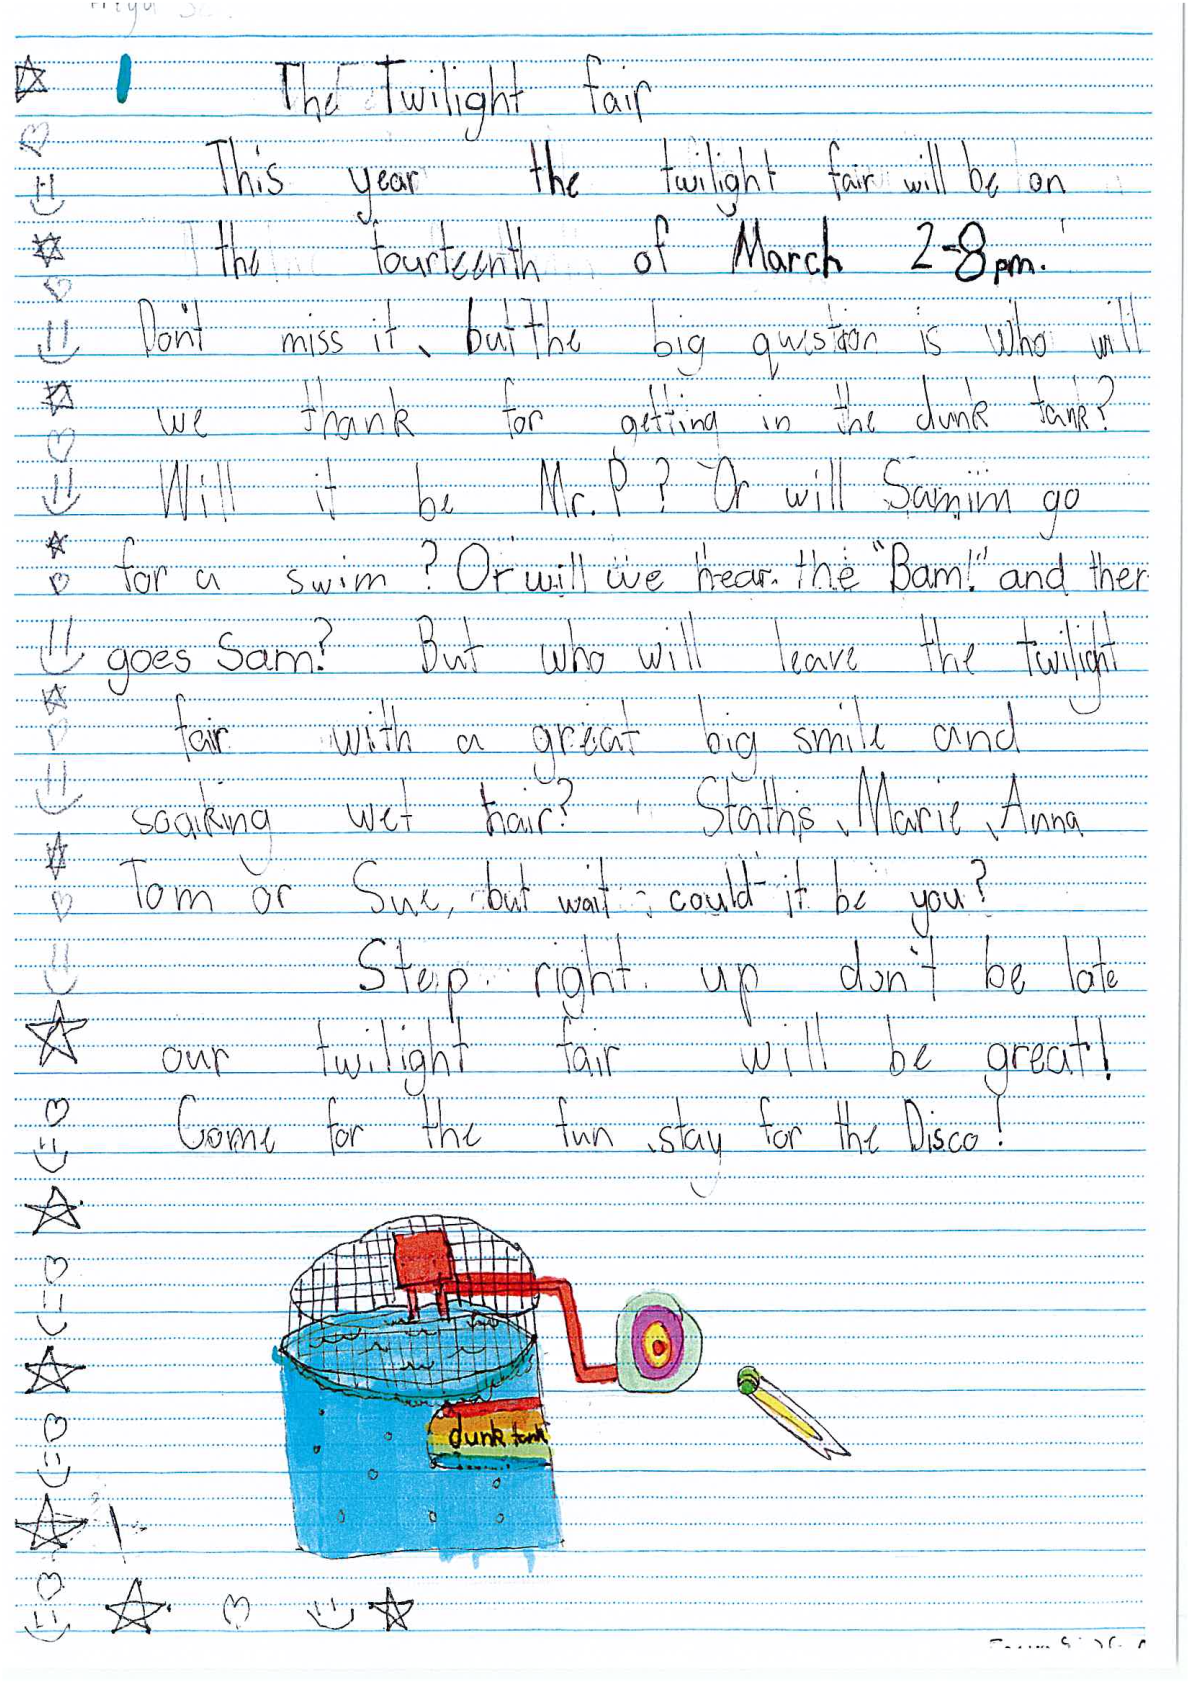 The Twilight fair
This year the twilight fair will be on
the fourteenth of March 2-8pm.
Don't miss it, but the big question is who will
we thank for getting in the dunk tank?
Will it be Mr. P? Or will Samim go
for a swim? Or will we hear the "Bam!" and ther
goes Sam? But who will leave the twilight
fair with a great big smile and
soaking wet hair? Stathis, Marie, Anna
Tom or Sue, but wait, could it be you?
Step right up don't be late
our twilight fair will be great!
Come for the fun, stay for the Disco!
dunk tank